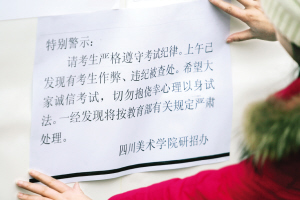 特别警示：
请考生严格遵守考试纪律。上午已
发现有考生作弊、违纪被查处。希望大
家诚信考试，切勿抱侥幸心理以身试
法。一经发现将按教育部有关规定严肃
处理。
四川美术学院研招办